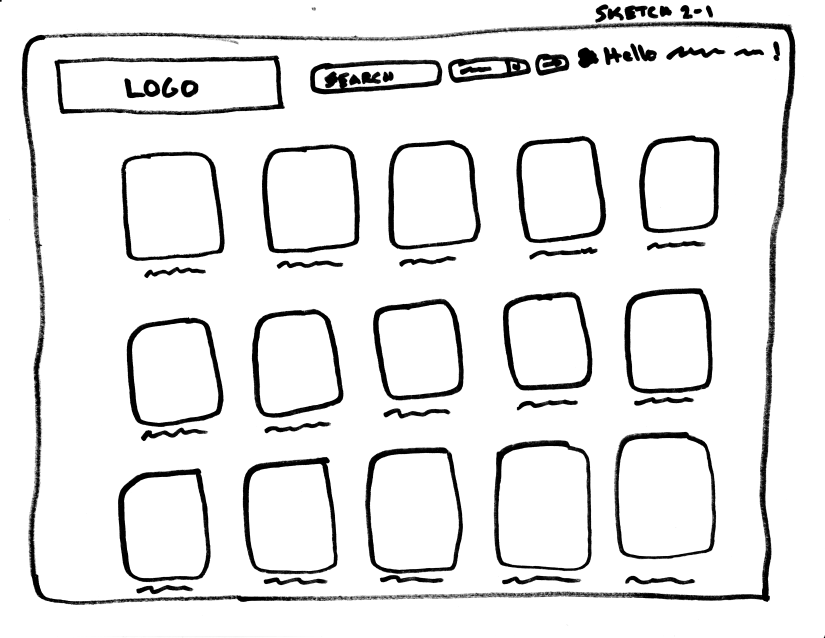 SKETCH 2-1
LOGO
SEARCH
Hello !